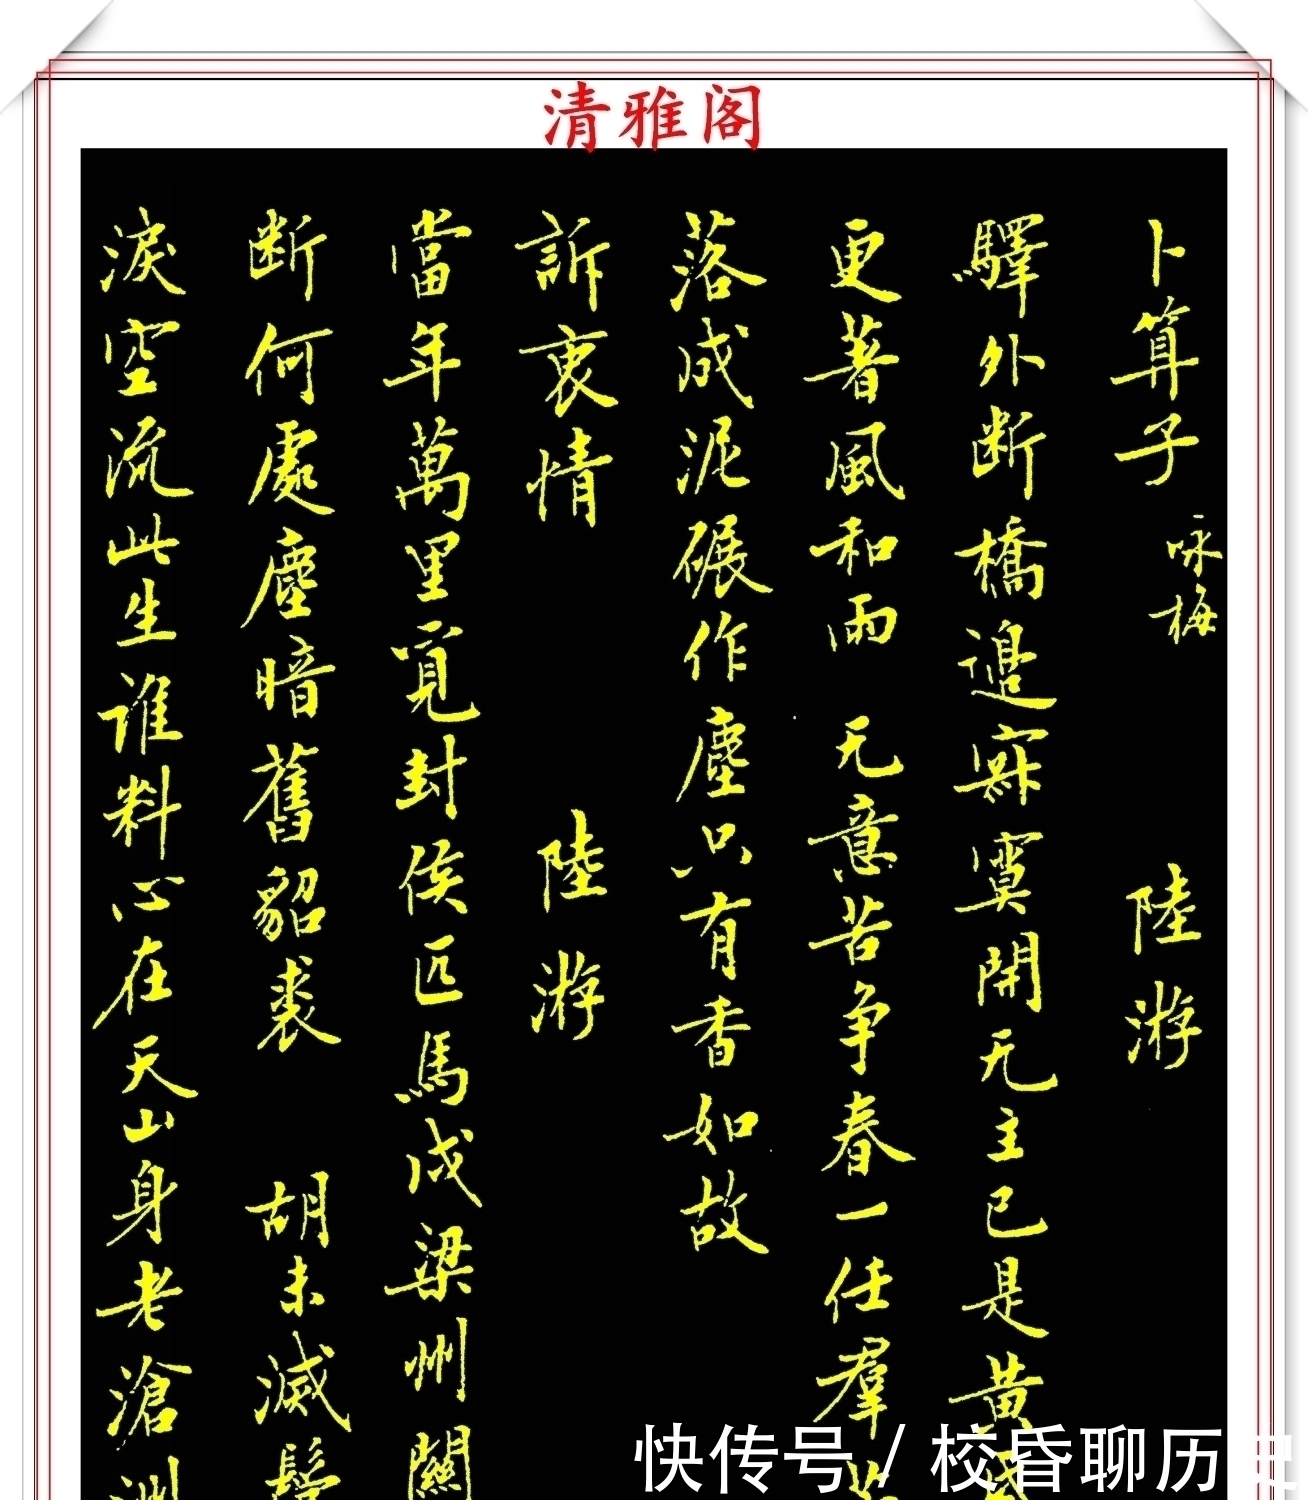 清雅阁
卜算子 咏梅 陸游
驛外断橋邉寂寞開无主已是黄
更著風和雨 无意苦争春一任羣
落成泥碾作塵只有香如故
訴衷情 陸游
當年萬里覓封侯匹馬戍梁州關
断何處塵暗舊貂裘 胡未滅鬓
淚空流此生谁料心在天山身老滄洲
快传号 / 校昏聊历史